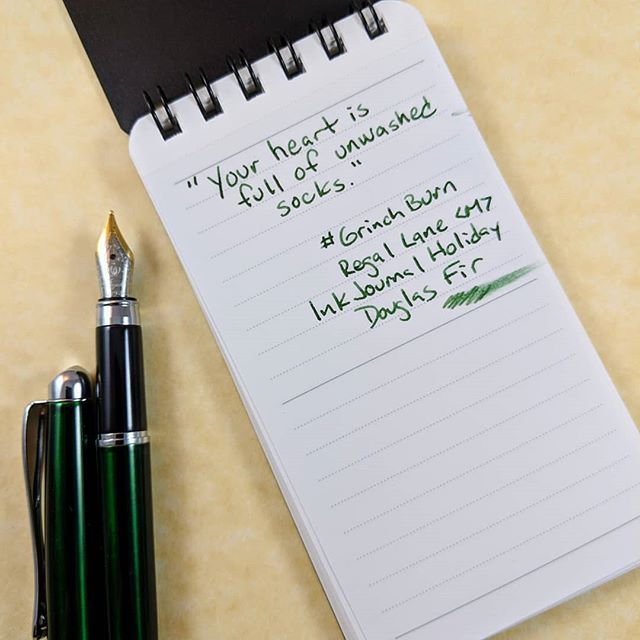 "Your heart is
full of unwashed
socks."
#GrinchBurn
Regal Lane CM7
InkJournal Holiday
Douglas Fir